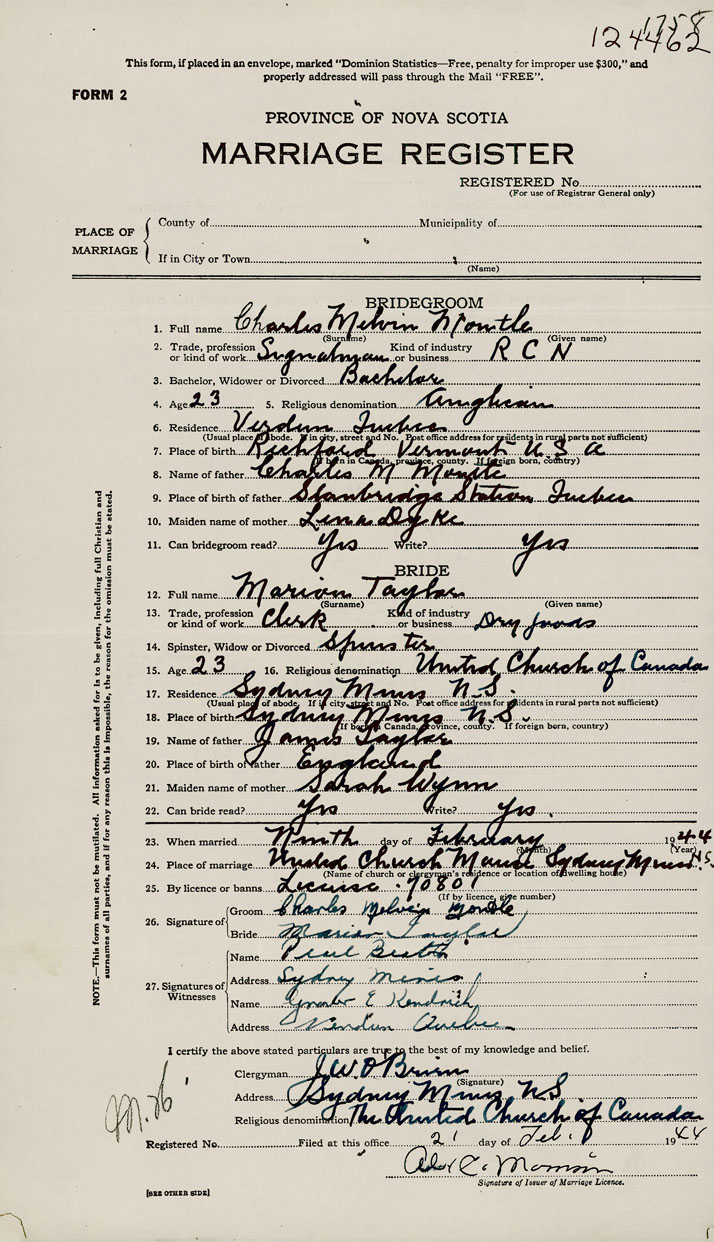 1758
124462
This form, if placed in an envelope, marked "Dominion Statistics—Free, penalty for improper use $300," and
properly addressed will pass through the Mail "FREE".
FORM 2
PROVINCE OF NOVA SCOTIA
MARRIAGE REGISTER
REGISTERED No.
(For use of Registrar General only)
PLACE OF MARRIAGE
County of Municipality of
If in City or Town
(Name)
BRIDEGROOM
1. Full name Charles Melvin Montle
(Surname) (Given name)
2. Trade, profession or kind of work Signalman Kind of industry or business R C N
3. Bachelor, Widower or Divorced Bachelor
4. Age 23 5. Religious denomination Anglican
6. Residence Verdun Quebec
(Usual place of abode. If in city, street and No. Post office address for residents in rural parts not sufficient)
7. Place of birth Richford Vermont U S A
(If born in Canada, province, county. If foreign born, country)
8. Name of father Charles M Montle
9. Place of birth of father Stanbridge Station Quebec
10. Maiden name of mother Lena Dyke
11. Can bridegroom read? Yes Write? Yes
BRIDE
12. Full name Marion Taylor
(Surname) (Given name)
13. Trade, profession or kind of work Clerk Kind of industry or business Dry goods
14. Spinster, Widow or Divorced Spinster
15. Age 23 16. Religious denomination United Church of Canada
17. Residence Sydney Mines N.S.
(Usual place of abode. If in city, street and No. Post office address for residents in rural parts not sufficient)
18. Place of birth Sydney Mines N.S.
(If born in Canada, province, county. If foreign born, country)
19. Name of father James Taylor
20. Place of birth of father England
21. Maiden name of mother Sarah Wynn
22. Can bride read? Yes Write? Yes.
23. When married Ninth day of February 1944
(Month) (Year)
24. Place of marriage United Church Manse Sydney Mines N.S.
(Name of church or clergyman's residence or location of dwelling house)
25. By licence or banns License 70801
(If by licence, give number)
26. Signature of Groom Charles Melvin Montle
Bride Marion Taylor
27. Signatures of Witnesses
Name Pearl Beaton
Address Sydney Mines
Name E Kendrick
Address Verdun Quebec
I certify the above stated particulars are true to the best of my knowledge and belief.
Clergyman J.W. O'Brien
(Signature)
Address Sydney Mines N S
Religious denomination The United Church of Canada
Registered No. Filed at this office 21 day of Feb. 1944
Alex C. Morrison
Signature of Issuer of Marriage Licence.
[SEE OTHER SIDE]
NOTE.—This form must not be mutilated. All information asked for is to be given, including full Christian and
surnames of all parties, and if for any reason this is impossible, the reason for the omission must be stated.